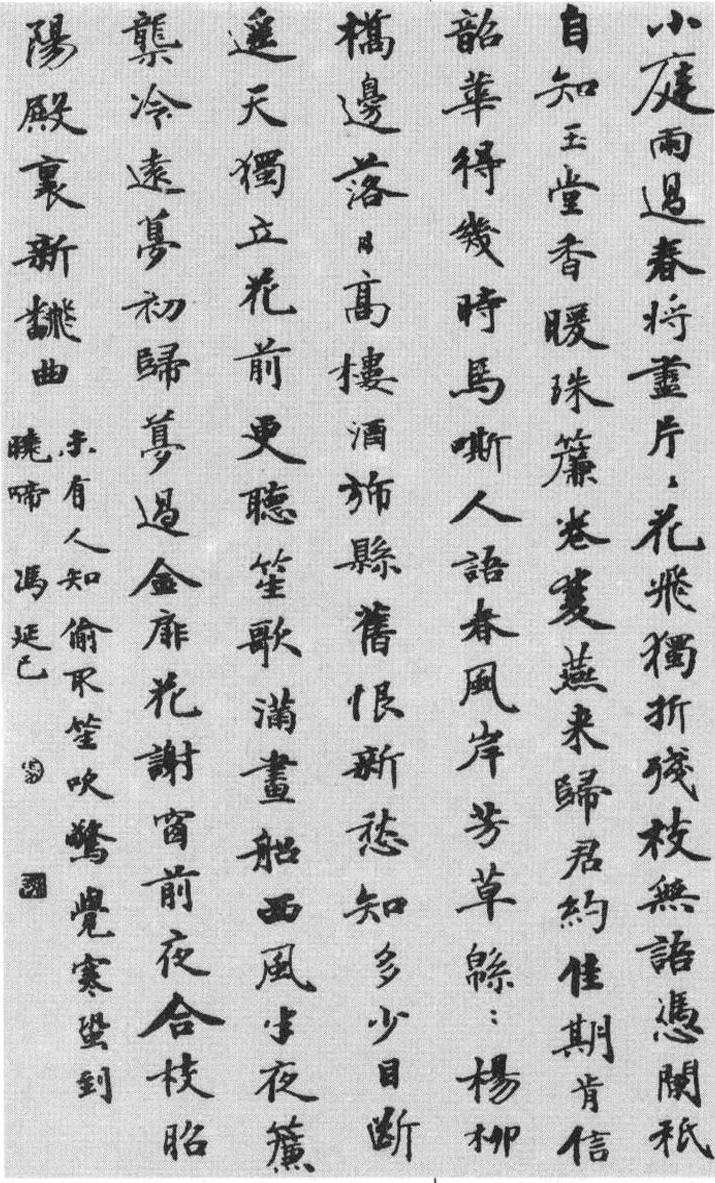 小庭雨過春將盡片〻花飛獨折殘枝無語憑闌秖
自知玉堂香暖珠簾卷雙燕来歸君約佳期肯信
韶華得幾時馬嘶人語春風岸芳草緜〻楊柳
橋邊落日高樓酒斾懸舊恨新愁知多少目斷
遥天獨立花前更聽笙歌滿畫船西風半夜簾
櫳冷遠夢初歸夢過金扉花謝窗前夜合枝昭
陽殿裏新飜曲
未有人知偷取笙吹驚覺寒蛩到
曉啼 馮延巳